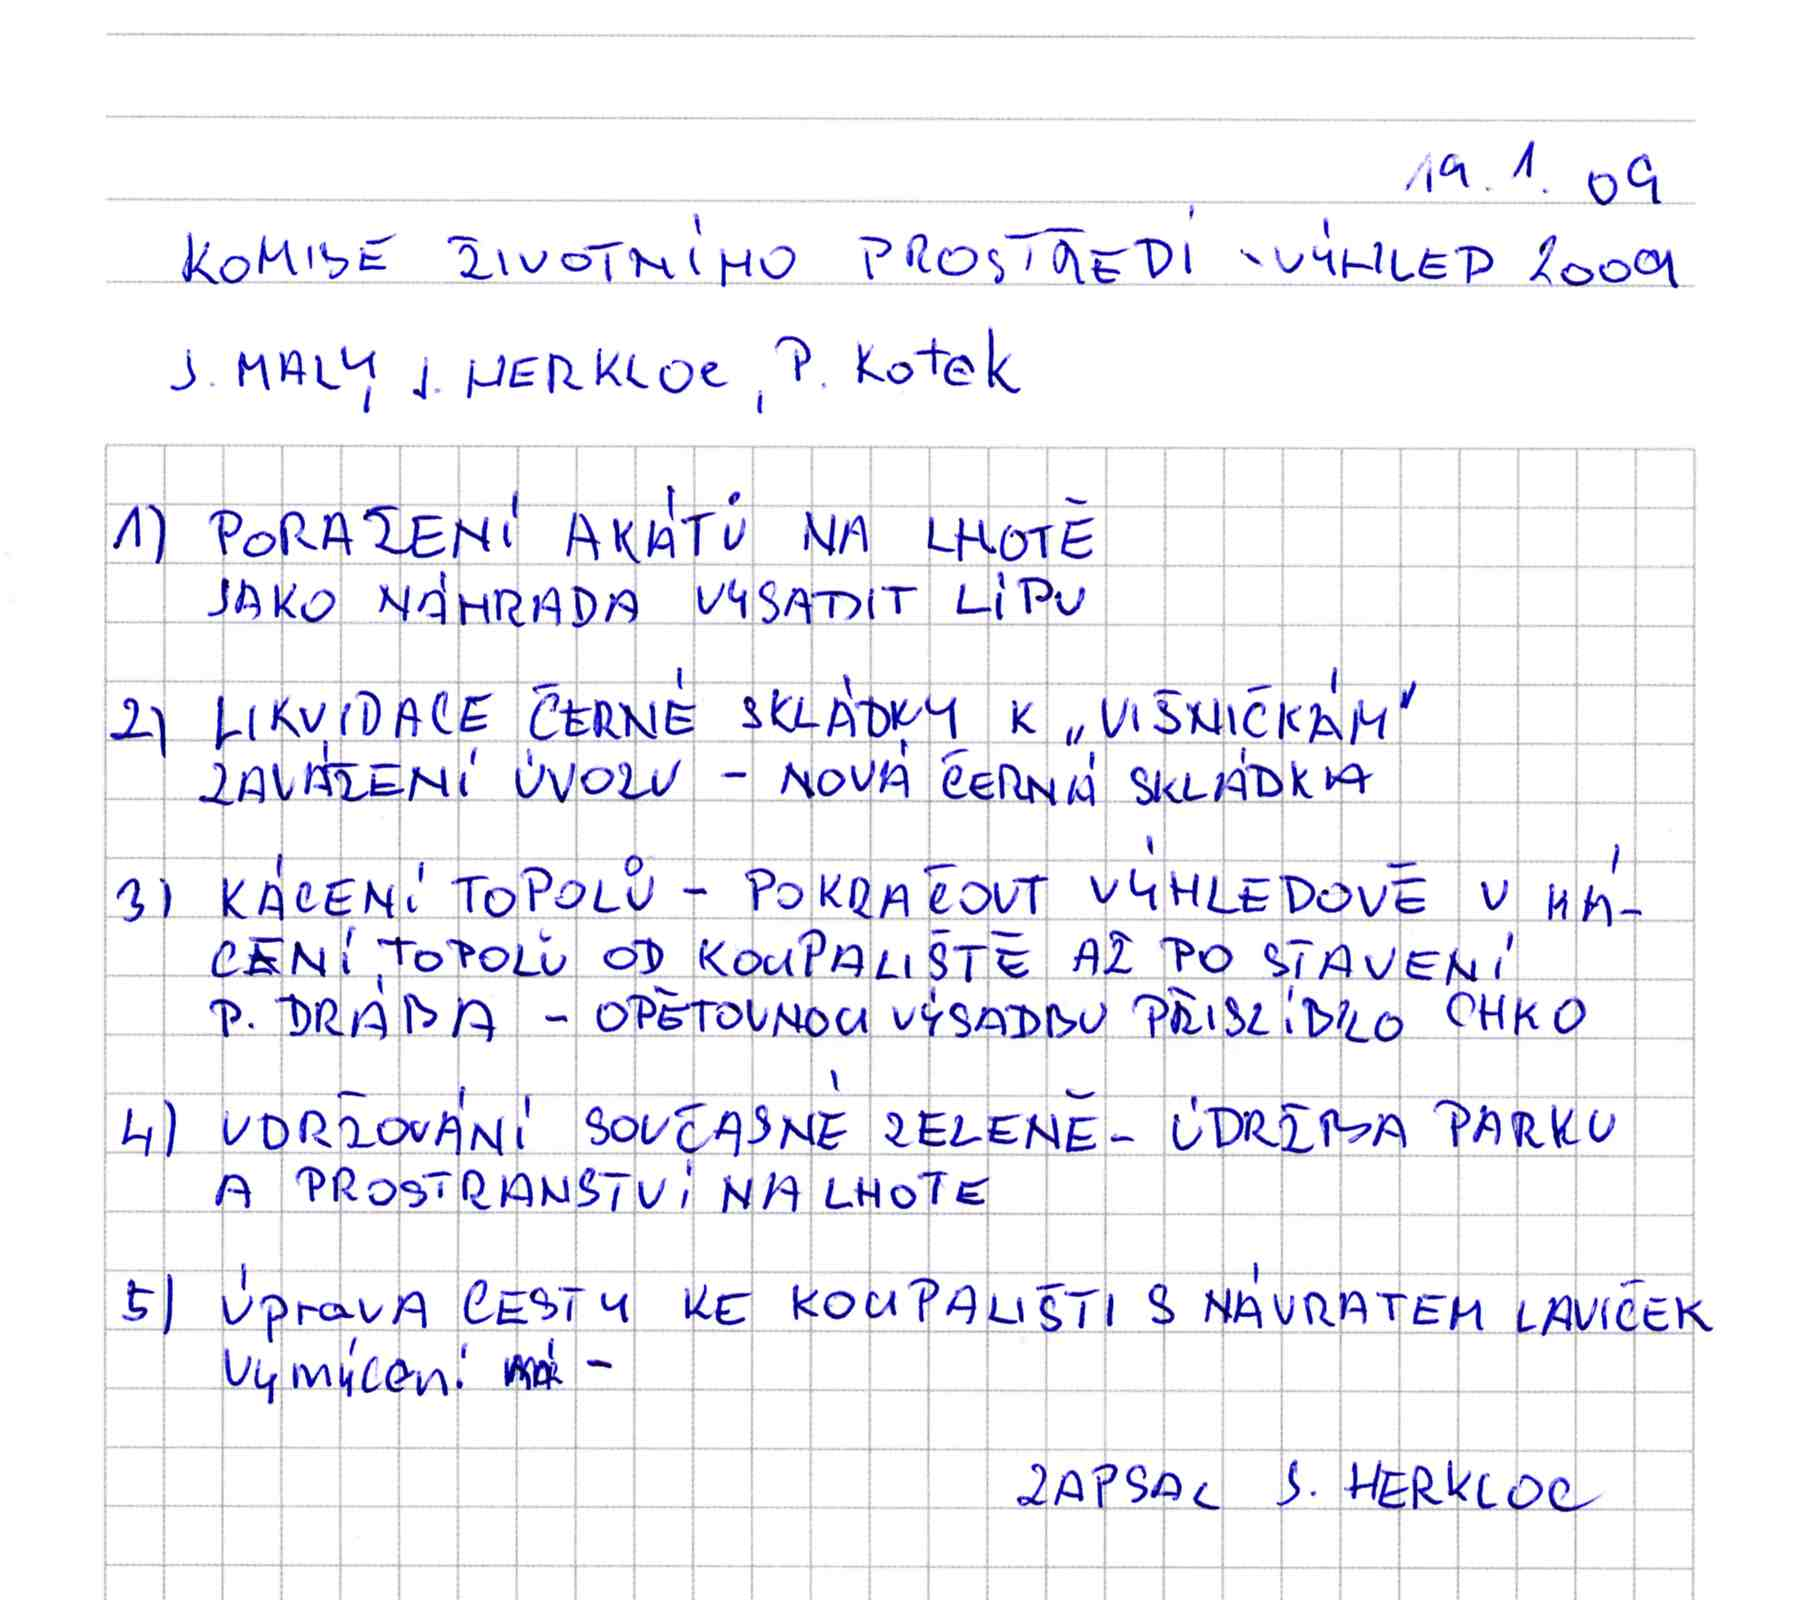 19. 1. 09
KOMISE ŽIVOTNÍHO PROSTŘEDÍ - VÝHLED 2009
J. MALÝ, J. HERKLOC, P. Kotek
1) PORAŽENÍ AKÁTŮ NA LHOTĚ
JAKO NÁHRADA VYSADIT LÍPU
2) LIKVIDACE ČERNÉ SKLÁDKY K „VIŠNIČKÁM“
ZAVÁŽENÍ ÚVOZU - NOVÁ ČERNÁ SKLÁDKA
3) KÁCENÍ TOPOLŮ - POKRAČOVT VÝHLEDOVĚ V KÁ-
CENÍ TOPOLŮ OD KOUPALIŠTĚ AŽ PO STAVENÍ
P. DRÁBA - OPĚTOVNOU VÝSADBU PŘISLÍBILO CHKO
4) UDRŽOVÁNÍ SOUČASNÉ ZELENĚ - ÚDRŽBA PARKU
A PROSTRANSTVÍ NA LHOTE
5) ÚpravA CESTY KE KOUPALIŠTI S NÁVRATEM LAVIČEK
Vymýcení -
ZAPSAL J. HERKLOC